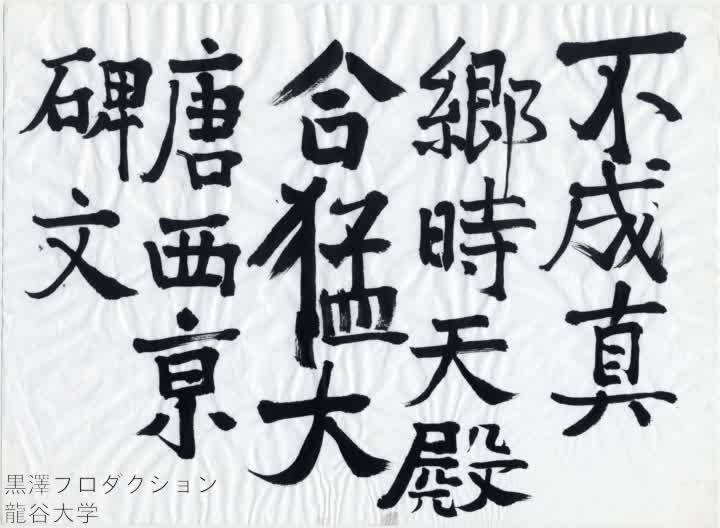 不成真
郷時天殿
合猛大
唐西京
碑文
黒澤プロダクション
龍谷大学